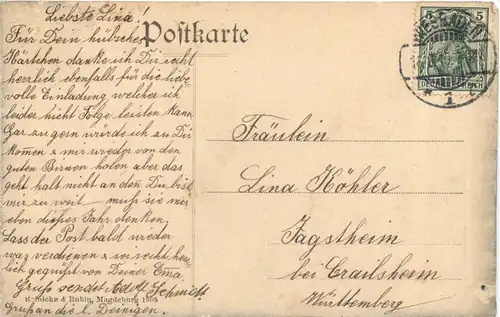 Liebste Lina!
Für Dein hübsches
Kärtchen danke ich Dir recht
herzlich ebenfalls für die liebe
volle Einladung, welcher ich
leider nicht Folge leisten kann
Gar zu gern würde ich zu Dir
kom̅en u mir wieder von den
guten Birnen holen aber das
geht halt nicht an den Du bist
mir zu weit muß sie mir
eben dieses Jahr denken.
Lass der Post bald wieder
was verdienen u sei recht herz
lich gegrüßt von Deiner Ema
Gruß sendet Adolf Schmidt
Gruß an die l. Deinigen.
Postkarte
WIESBADEN
1
5
DEUTSCHES REICH
Fräulein
Lina Köhler
Jagstheim
bei Crailsheim
Württemberg
& Rubin, Magdeburg 1905